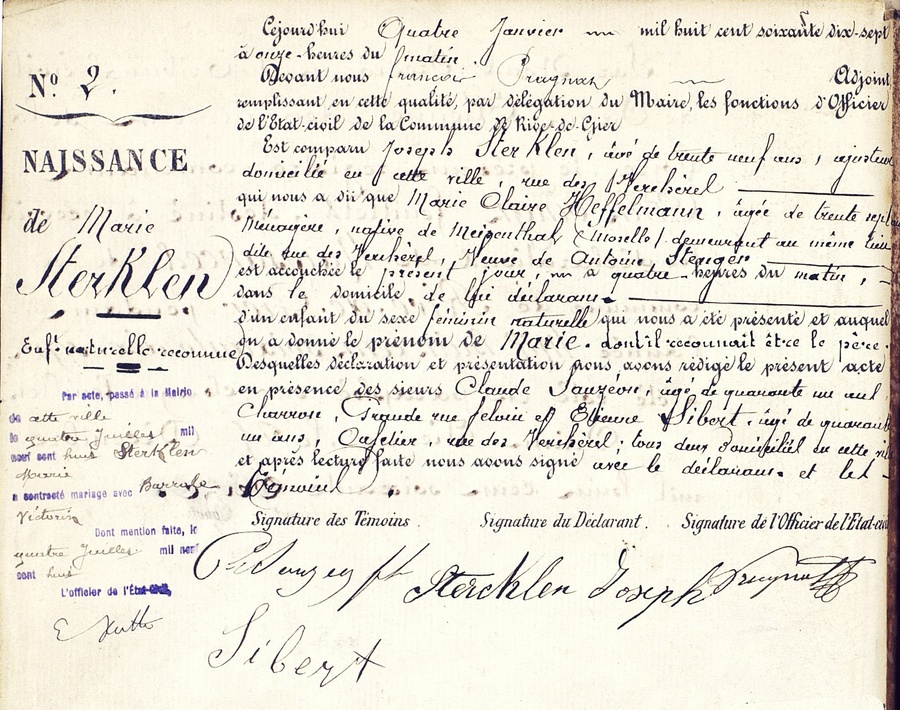 Nº 2.
NAISSANCE
de Marie
Sterklen
Enft naturelle reconnue
Par acte, passé à la Mairie
de cette ville
le quatre Juillet mil
neuf cent huit Sterklen
Marie
a contracté mariage avec Barrafe
Victorin
Dont mention faite, le
quatre Juillet mil neuf
cent huit
L'officier de l'État-Civil,
Cejourd'hui Quatre Janvier mil huit cent soixante dix-sept
à onze heures du matin
Devant nous François Pragnat Adjoint
remplissant, en cette qualité, par délégation du Maire, les fonctions d'Officier
de l'Etat-civil de la Commune de Rive-de-Gier
Est comparu Joseph Sterklen, âgé de trente neuf ans, ajusteur
domicilié en cette ville, rue des Verchères
qui nous a dit que Marie Claire Heffelmann, âgée de trente sept
Ménagère, native de Meisenthal (Moselle) demeurant au même lieu
dite rue des Verchères, Veuve de Antoine Stenger
est accouchée le présent jour, à quatre heures du matin,
dans le domicile de lui déclarant
d'un enfant du sexe féminin naturelle qui nous a été présenté et auquel
on a donné le prénom de Marie. dont il reconnait être le père.
Desquelles déclaration et présentation nous avons rédigé le présent acte
en présence des sieurs Claude Sauzéon, âgé de quarante un ans
Charron, Grande rue feloin et Etienne Sibert, âgé de quarante
un ans, Cafetier, rue des Verchères; tous deux domiciliés en cette ville
et après lecture faite nous avons signé avec le déclarant et les
témoins
Signature des Témoins. Signature du Déclarant. Signature de l'Officier de l'Etat-civil
Stercklen Joseph Pragnat
Sibert